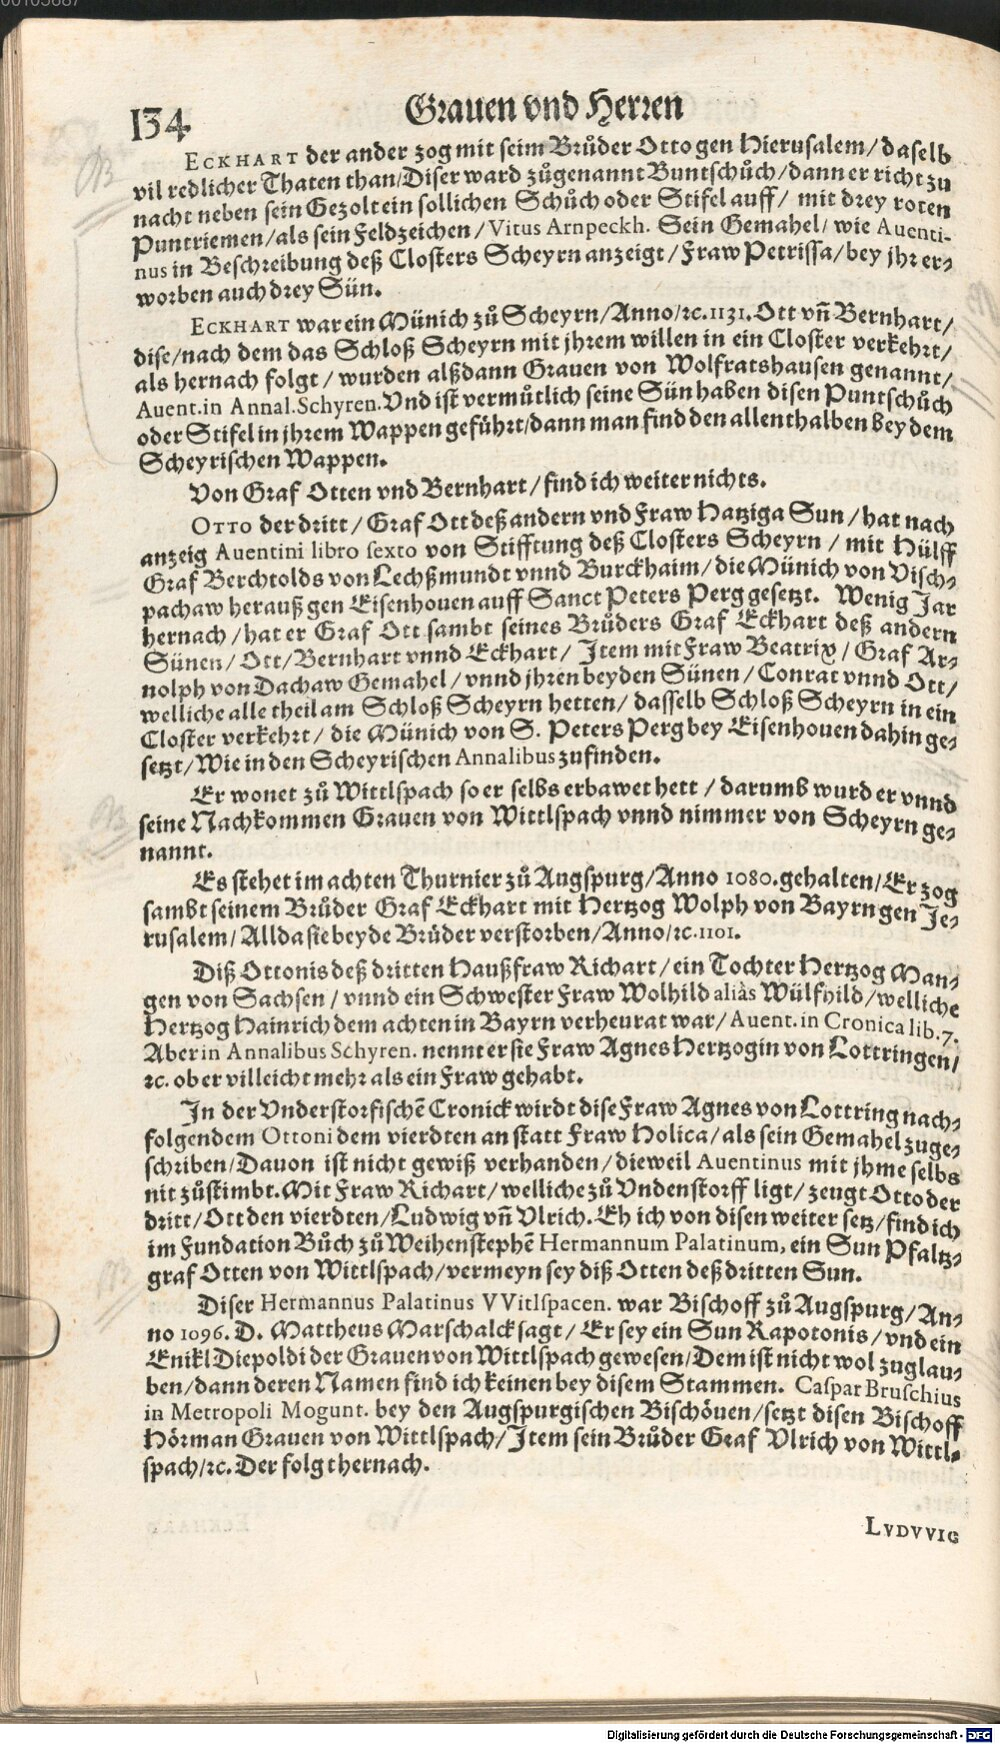 134
Grauen vnd Herren
ECKHART der ander zog mit seim Brůder Otto gen Hierusalem/ daselb
vil redlicher Thaten than/Diser ward zůgenannt Buntschůch/dann er richt zu
nacht neben sein Gezolt ein sollichen Schůch oder Stifel auff/ mit drey roten
Puntriemen/als sein Feldzeichen/Vitus Arnpeckh. Sein Gemahel/ wie Auenti-
nus in Beschreibung deß Closters Scheyrn anzeigt/Fraw Petrissa/bey jhr er-
worben auch drey Sün.
ECKHART war ein Münich zů Scheyrn/Anno/rc.1131. Ott vñ Bernhart/
dise/nach dem das Schloß Scheyrn mit jhrem willen in ein Closter verkehrt/
als hernach folgt / wurden alßdann Grauen von Wolfratshausen genannt/
Auent.in Annal.Schyren. Vnd ist vermůtlich seine Sün haben disen Puntschůch
oder Stifel in jhrem Wappen geführt/dann man find den allenthalben bey dem
Scheyrischen Wappen.
Von Graf Otten vnd Bernhart/find ich weiter nichts.
OTTO der dritt/ Graf Ott deß andern vnd Fraw Hatziga Sun/hat nach
anzeig Auentini libro sexto von Stifftung deß Closters Scheyrn / mit Hülff
Graf Berchtolds von Lechßmundt vnnd Burckhaim/die Münich von Visch-
pachaw herauß gen Eisenhouen auff Sanct Peters Perg gesetzt. Wenig Jar
hernach/hat er Graf Ott sambt seines Brůders Graf Eckhart deß andern
Sünen/ Ott/Bernhart vnnd Eckhart/ Item mit Fraw Beatrix/Graf Ar-
nolph von Dachaw Gemahel/vnnd jhren beyden Sünen/ Conrat vnnd Ott/
welliche alle theil am Schloß Scheyrn hetten/ dasselb Schloß Scheyrn in ein
Closter verkehrt/ die Münich von S. Peters Perg bey Eisenhouen dahin ge-
setzt/Wie in den Scheyrischen Annalibus zufinden.
Er wonet zů Wittlspach so er selbs erbawet hett / darumb wurd er vnnd
seine Nachkommen Grauen von Wittlspach vnnd nimmer von Scheyrn ge-
nannt.
Es stehet im achten Thurnier zů Augspurg/Anno 1080. gehalten/Er zog
sambt seinem Brůder Graf Eckhart mit Hertzog Wolph von Bayrn gen Je-
rusalem/Allda sie beyde Brůder verstorben/Anno/rc.1101.
Diß Ottonis deß dritten Haußfraw Richart/ein Tochter Hertzog Man-
gen von Sachsen/vnnd ein Schwester Fraw Wolhild aliàs Wülfhild/welliche
Hertzog Hainrich dem achten in Bayrn verheurat war/Auent.in Cronica lib.7.
Aber in Annalibus Schyren. nennt er sie Fraw Agnes Hertzogin von Lottringen/
rc. ob er villeicht mehr als ein Fraw gehabt.
In der Vnderstorfischẽ Cronick wirdt dise Fraw Agnes von Lottring nach-
folgendem Ottoni dem vierdten an statt Fraw Holica/als sein Gemahel zuge-
schriben/Dauon ist nicht gewiß verhanden/dieweil Auentinus mit jhme selbs
nit zůstimbt. Mit Fraw Richart/welliche zů Vndenstorff ligt/zeugt Otto der
dritt/Ott den vierdten/Ludwig vñ Vlrich. Eh ich von disen weiter setz/find ich
im Fundation Bůch zů Weihenstephẽ Hermannum Palatinum, ein Sun Pfaltz-
graf Otten von Wittlspach/vermeyn sey diß Otten deß dritten Sun.
Diser Hermannus Palatinus VVitlspacen. war Bischoff zů Augspurg/An-
no 1096. D. Mattheus Marschalck sagt/ Er sey ein Sun Rapotonis/vnd ein
Enikl Diepoldi der Grauen von Wittlspach gewesen/Dem ist nicht wol zuglau-
ben/dann deren Namen find ich keinen bey disem Stammen. Caspar Bruschius
in Metropoli Mogunt. bey den Augspurgischen Bischöuen/setzt disen Bischoff
Hörman Grauen von Wittlspach/Item sein Brůder Graf Vlrich von Wittl-
spach/rc. Der folgt hernach.
LVDVVIG
Digitalisierung gefördert durch die Deutsche Forschungsgemeinschaft - DFG